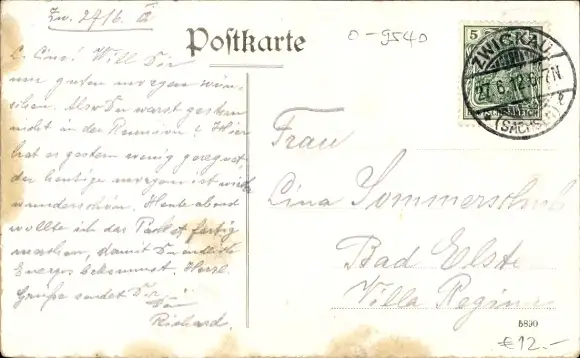 Zw. 27/6. 12
Postkarte
0-9540
5
ZWICKAU
27.6.12. 6-7N
(SACHSEN)
L. Cina! Will Dir
nur guten morgen wün-
schen. Also Du warst gestern
nicht in der Reunion? Hier
hat es gestern wenig geregnet,
der heutige morgen ist
wunderschön. Heute abend
wollte ich das Paket fertig
machen, damit Du endlich
bekommst. Herzl.
Grüße sendet Dir
Dein
Richard.
Frau
Cina Sommerschuh
Bad Elster
Villa Regina
5890
€12.-